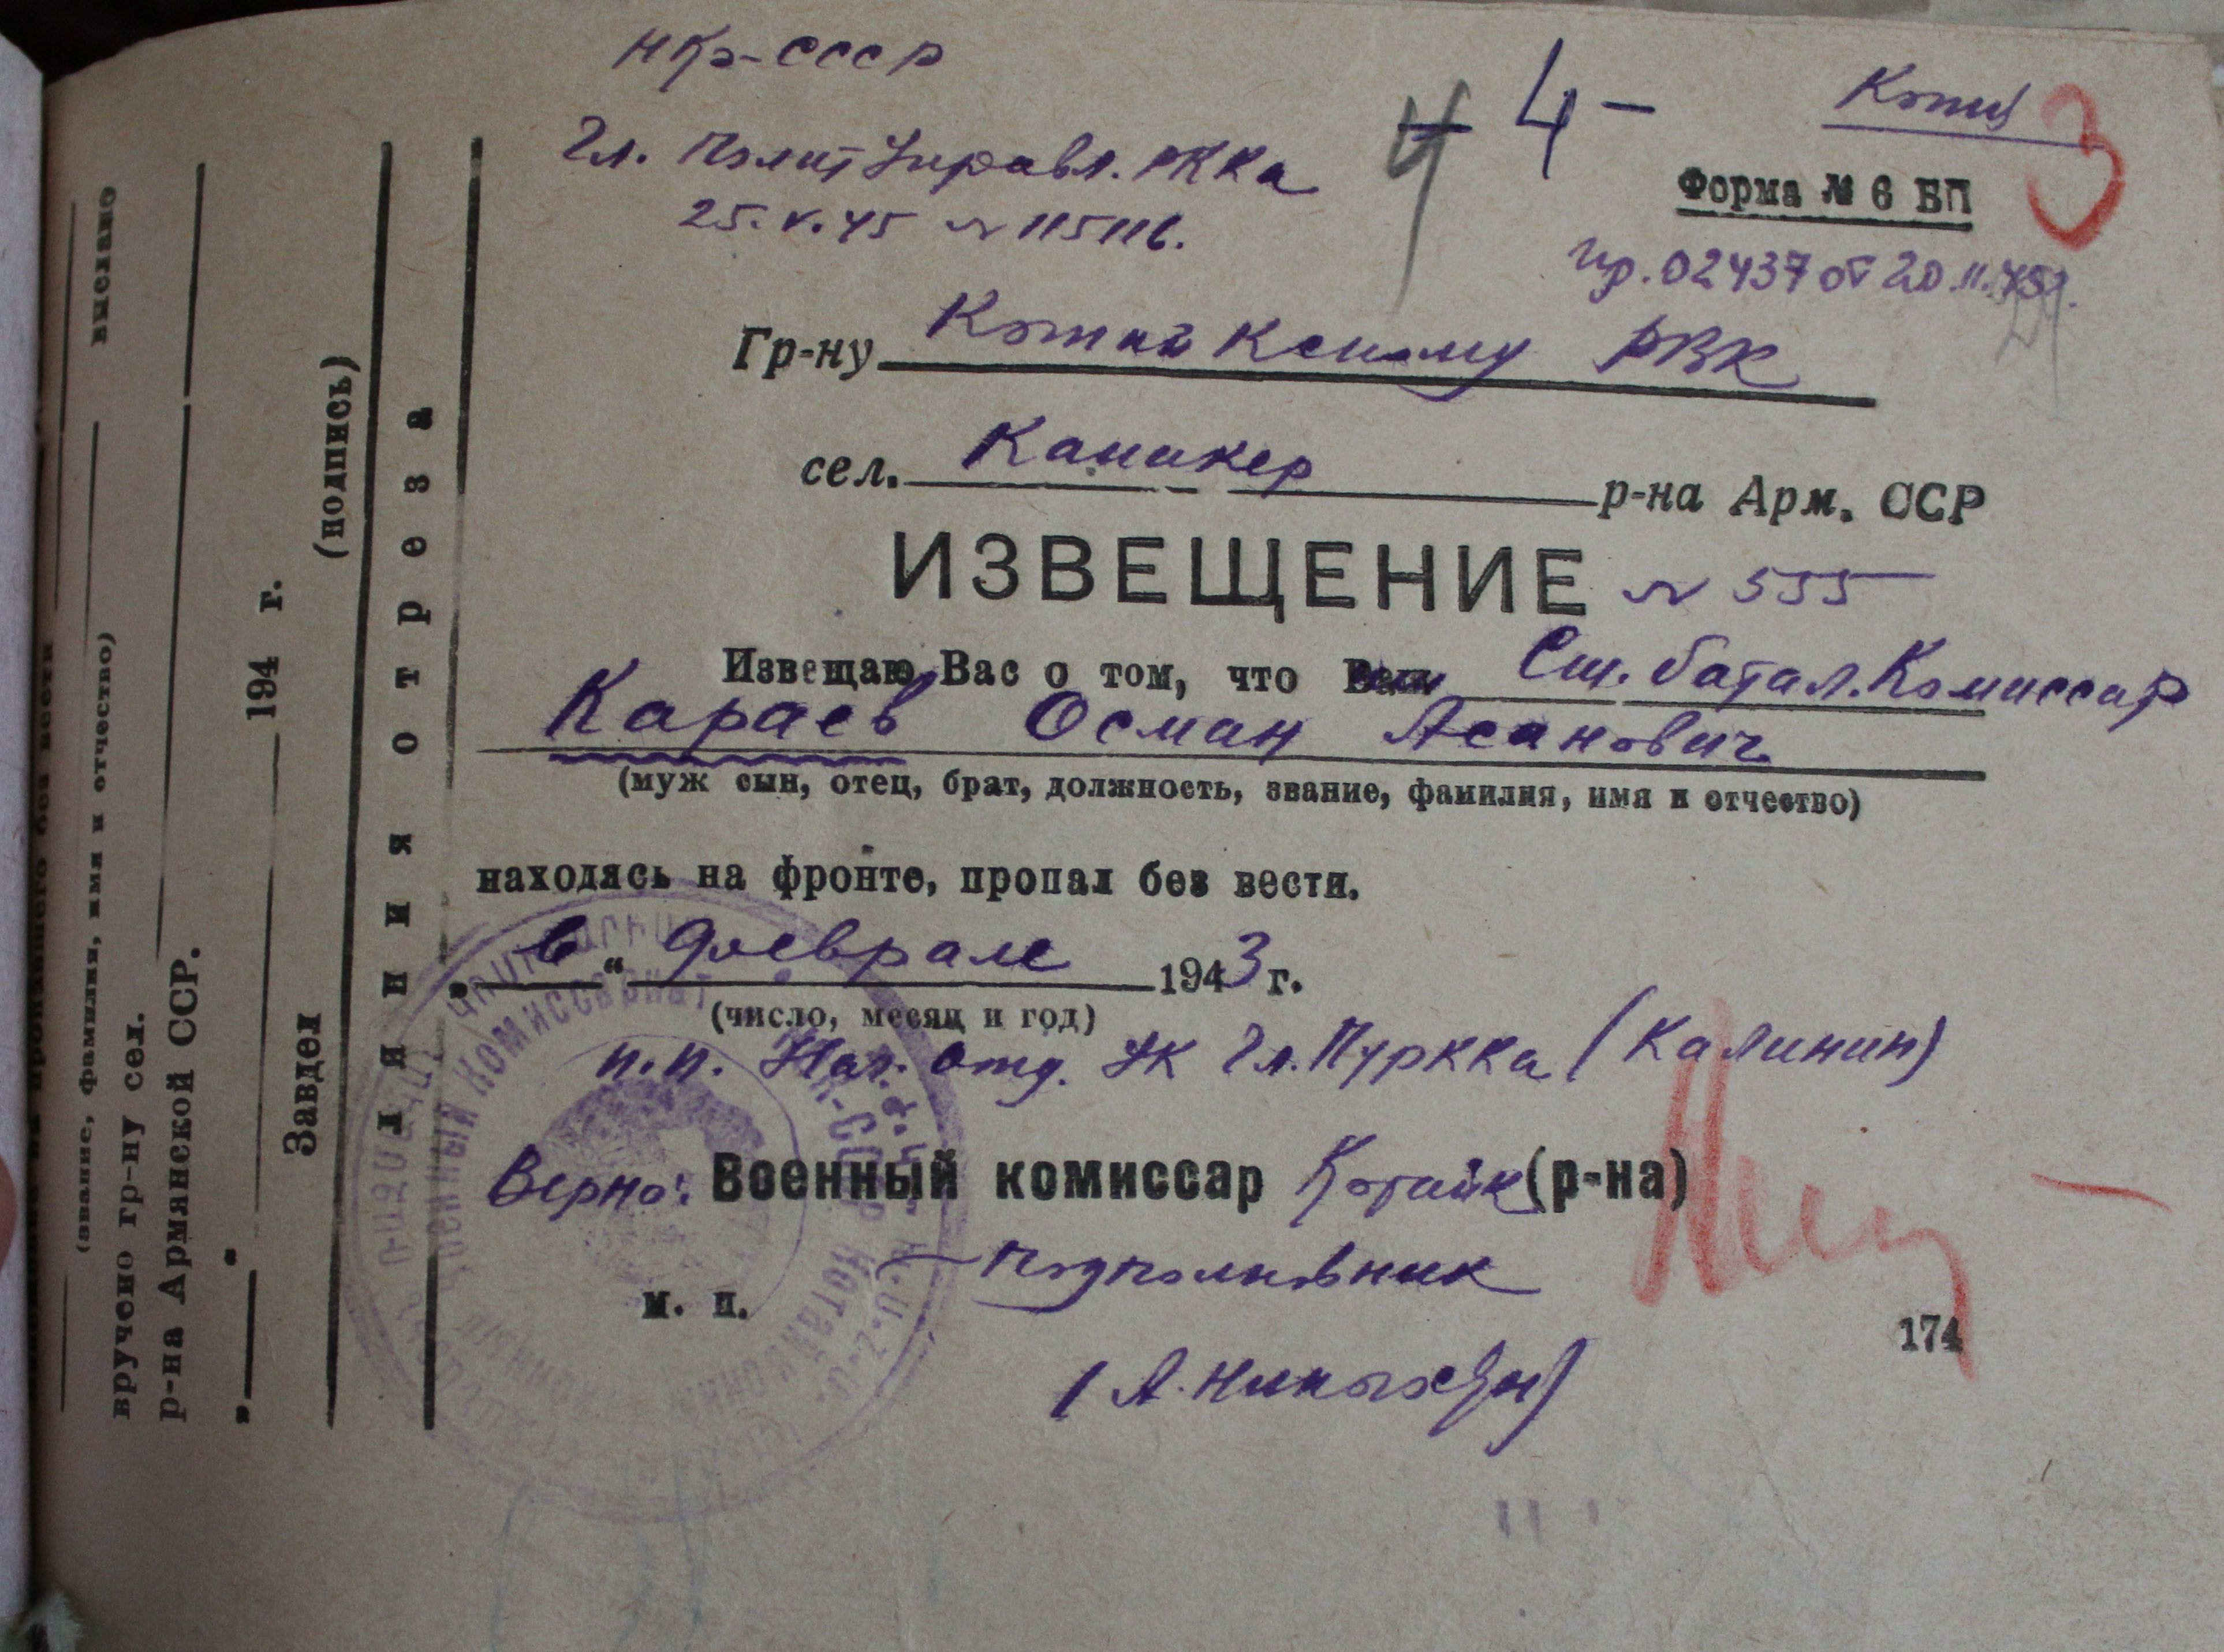 НКО-СССР
Гл. Полит Управл. РККА
25.V.45 N 115116.
4 - 4 -
Копия
3
Форма № 6 БП
пр. 02437 от 20.11.45г.
Гр-ну Котайкскому РВК
сел. Канакер р-на Арм. ССР
ИЗВЕЩЕНИЕ N 555
Извещаю Вас о том, что Ст. батал. Комиссар
Караев Осман Асанович
(муж сын, отец, брат, должность, звание, фамилия, имя и отчество)
находясь на фронте, пропал без вести.
„ в “ феврале 1943 г.
(число, месяц и год)
п.п. Нач. отд. УК Гл. ПУРККА (Калинин)
Верно: Военный комиссар Котайк (р-на)
Подполковник
м. п.
174
линия отреза
(подпись)
Завдел
194 г.
р-на Армянской ССР.
вручено гр-ну сел.
(звание, фамилия, имя и отчество)
выслано
пропавшего без вести